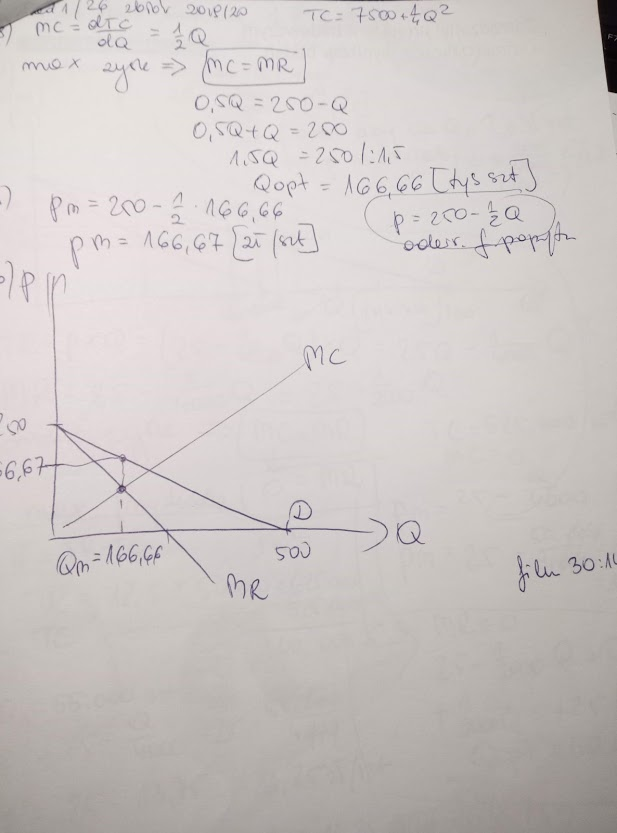 1/26 zbiór 2019/20 TC = 7500 + 1/4 Q²
MC = dTC/dQ = 1/2 Q
max zysk => MC = MR
0,5Q = 250 - Q
0,5Q + Q = 250
1,5Q = 250 /: 1,5
Qopt = 166,66 [tys szt]
pm = 250 - 1/2 · 166,66
pm = 166,67 [zł/szt]
p = 250 - 1/2 Q
odwr. f. popytu
P
MC
250
66,67
D
Qm = 166,66
500
Q
MR
film 30:14